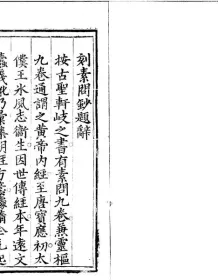 刻素問鈔題辭
按古聖軒岐之書有素問九卷兼靈樞
九卷通謂之黃帝內經至唐寶應初太
僕王氷風志衛生因世傳經本年遠文